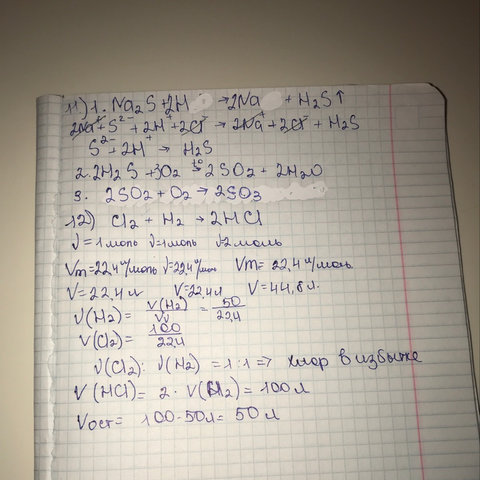 11) 1. Na₂S + 2H → 2Na + H₂S↑
2Na⁺ + S²⁻ + 2H⁺ + 2Cl⁻ → 2Na⁺ + 2Cl⁻ + H₂S
S²⁻ + 2H⁺ → H₂S
2. 2H₂S + 3O₂ →t° 2SO₂ + 2H₂O
3. 2SO₂ + O₂ → 2SO₃
12) Cl₂ + H₂ → 2HCl
ν = 1 моль ν = 1 моль ν = 2 моль
Vm = 22,4 л/моль V = 22,4 л/моль Vm = 22,4 л/моль
V = 22,4 л V = 22,4 л V = 44,8 л.
ν(H₂) = V(H₂)/Vν = 50/22,4
ν(Cl₂) = 100/22,4
ν(Cl₂) : ν(H₂) = 1 : 1 => хлор в избытке
V(HCl) = 2 · V(H₂) = 100 л
Vост = 100 - 50 л = 50 л